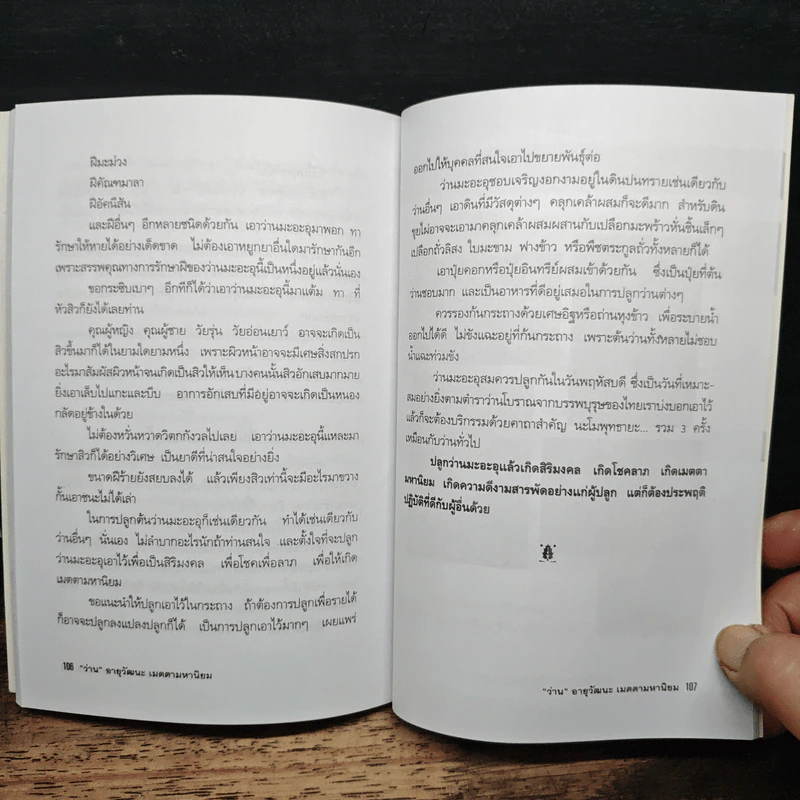 ฝีมะม่วง
ฝีคัณฑมาลา
ฝีอัคนีสัน
และฝีอื่นๆ อีกหลายชนิดด้วยกัน เอาว่านมะอะอุมาพอก ทา
รักษาให้หายได้อย่างเด็ดขาด ไม่ต้องเอาหยูกยาอื่นใดมารักษากันอีก
เพราะสรรพคุณทางการรักษาฝีของว่านมะอะอุนี้เป็นหนึ่งอยู่แล้วนั่นเอง
ขอกระซิบเบาๆ อีกทีก็ได้ว่าเอาว่านมะอะอุนี้มาแต้ม ทา ที่
หัวสิวก็ยังได้เลยท่าน
คุณผู้หญิง คุณผู้ชาย วัยรุ่น วัยอ่อนเยาว์ อาจจะเกิดเป็น
สิวขึ้นมาก็ได้ในยามใดยามหนึ่ง เพราะผิวหน้าอาจจะมีเศษสิ่งสกปรก
อะไรมาสัมผัสผิวหน้าจนเกิดเป็นสิวให้เห็น บางคนนั้นสิวอักเสบมากมาย
ยิ่งเอาเล็บไปแกะและบีบ อาการอักเสบที่มีอยู่อาจจะเกิดเป็นหนอง
กลัดอยู่ข้างในด้วย
ไม่ต้องหวั่นหวาดวิตกกังวลไปเลย เอาว่านมะอะอุนี้แหละมา
รักษาสิวก็ได้อย่างวิเศษ เป็นยาดีที่น่าสนใจอย่างยิ่ง
ขนาดฝีร้ายยังสยบลงได้ แล้วเพียงสิวเท่านี้จะมีอะไรมาขวาง
กั้นเอาชนะไม่ได้เล่า
ในการปลูกต้นว่านมะอะอุก็เช่นเดียวกัน ทำได้เช่นเดียวกับ
ว่านอื่นๆ นั่นเอง ไม่ลำบากอะไรนักถ้าท่านสนใจ และตั้งใจที่จะปลูก
ว่านมะอะอุเอาไว้เพื่อเป็นสิริมงคล เพื่อโชคเพื่อลาภ เพื่อให้เกิด
เมตตามหานิยม
ขอแนะนำให้ปลูกเอาไว้ในกระถาง ถ้าต้องการปลูกเพื่อรายได้
ก็อาจจะปลูกลงแปลงปลูกก็ได้ เป็นการปลูกเอาไว้มากๆ เผยแพร่
106 "ว่าน" อายุวัฒนะ เมตตามหานิยม
ออกไปให้บุคคลที่สนใจเอาไปขยายพันธุ์ต่อ
ว่านมะอะอุชอบเจริญงอกงามอยู่ในดินปนทรายเช่นเดียวกับ
ว่านอื่นๆ เอาดินที่มีวัสดุต่างๆ คลุกเคล้าผสมก็จะดีมาก สำหรับดิน
ขุยไผ่อาจจะเอามาคลุกเคล้าผสมผสานกับเปลือกมะพร้าวหั่นชิ้นเล็กๆ
เปลือกถั่วลิสง ใบมะขาม ฟางข้าว หรือพืชตระกูลถั่วทั้งหลายก็ได้
เอาปุ๋ยคอกหรือปุ๋ยอินทรีย์ผสมเข้าด้วยกัน ซึ่งเป็นปุ๋ยที่ต้น
ว่านชอบมาก และเป็นอาหารที่ดีอยู่เสมอในการปลูกว่านต่างๆ
ควรรองก้นกระถางด้วยเศษอิฐหรือถ่านหุงข้าว เพื่อระบายน้ำ
ออกไปได้ดี ไม่ขังแฉะอยู่ที่ก้นกระถาง เพราะต้นว่านทั้งหลายไม่ชอบ
น้ำแฉะท่วมขัง
ว่านมะอะอุสมควรปลูกกันในวันพฤหัสบดี ซึ่งเป็นวันที่เหมาะ-
สมอย่างยิ่งตามตำราว่านโบราณจากบรรพบุรุษของไทยเราบ่งบอกเอาไว้
แล้วก็จะต้องบริกรรมด้วยคาถาสำคัญ นะโมพุทธายะ... รวม 3 ครั้ง
เหมือนกับว่านทั่วไป
ปลูกว่านมะอะอุแล้วเกิดสิริมงคล เกิดโชคลาภ เกิดเมตตา
มหานิยม เกิดความดีงามสารพัดอย่างแก่ผู้ปลูก แต่ก็ต้องประพฤติ
ปฏิบัติที่ดีกับผู้อื่นด้วย
"ว่าน" อายุวัฒนะ เมตตามหานิยม 107